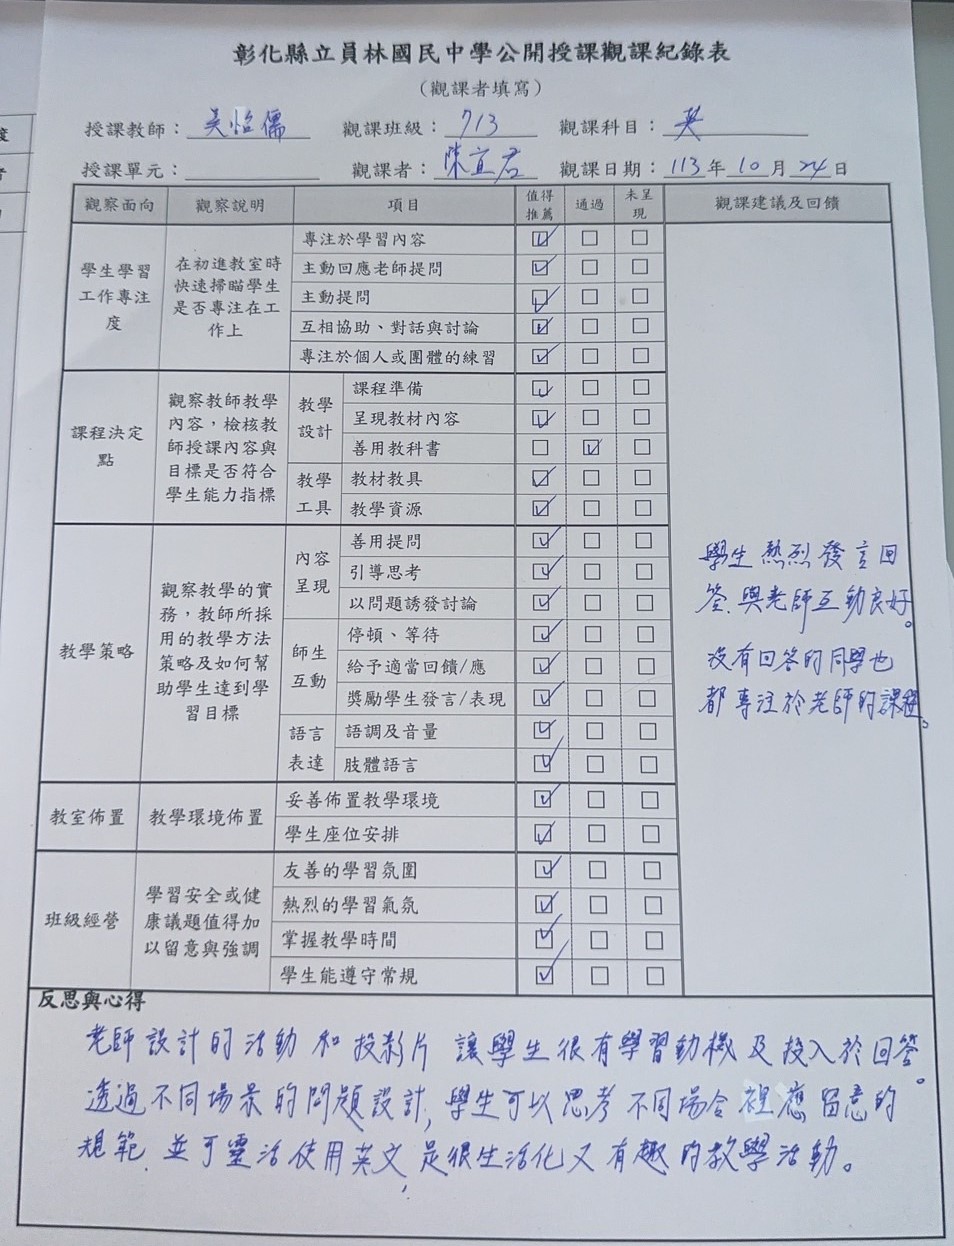 彰化縣立員林國民中學公開授課觀課紀錄表
（觀課者填寫）
授課教師：吳怡儒 觀課班級：713 觀課科目：英
授課單元： 觀課者：陳宜君 觀課日期：113年10月24日
觀察面向 觀察說明 項目 值得推薦 通過 未呈現 觀課建議及回饋
學生學習
工作專注
度
在初進教室時
快速掃瞄學生
是否專注在工
作上
專注於學習內容 ☑ □ □
主動回應老師提問 ☑ □ □
主動提問 ☑ □ □
互相協助、對話與討論 ☑ □ □
專注於個人或團體的練習 ☑ □ □
課程決定
點
觀察教師教學
內容，檢核教
師授課內容與
目標是否符合
學生能力指標
教學
設計
課程準備 ☑ □ □
呈現教材內容 ☑ □ □
善用教科書 □ ☑ □
教學
工具
教材教具 ☑ □ □
教學資源 ☑ □ □
教學策略
觀察教學的實
務，教師所採
用的教學方法
策略及如何幫
助學生達到學
習目標
內容
呈現
善用提問 ☑ □ □
引導思考 ☑ □ □
以問題誘發討論 ☑ □ □
師生
互動
停頓、等待 ☑ □ □
給予適當回饋/應 ☑ □ □
獎勵學生發言/表現 ☑ □ □
語言
表達
語調及音量 ☑ □ □
肢體語言 ☑ □ □
教室佈置 教學環境佈置
妥善佈置教學環境 ☑ □ □
學生座位安排 ☑ □ □
班級經營
學習安全或健
康議題值得加
以留意與強調
友善的學習氛圍 ☑ □ □
熱烈的學習氣氛 ☑ □ □
掌握教學時間 ☑ □ □
學生能遵守常規 ☑ □ □
學生熱烈發言回
答、與老師互動良好。
沒有回答的同學也
都專注於老師的課程。
反思與心得
老師設計的活動和投影片讓學生很有學習動機及投入於回答。
透過不同場景的問題設計，學生可以思考不同場合裡應留意的
規範，並可靈活使用英文，是很生活化又有趣的教學活動。